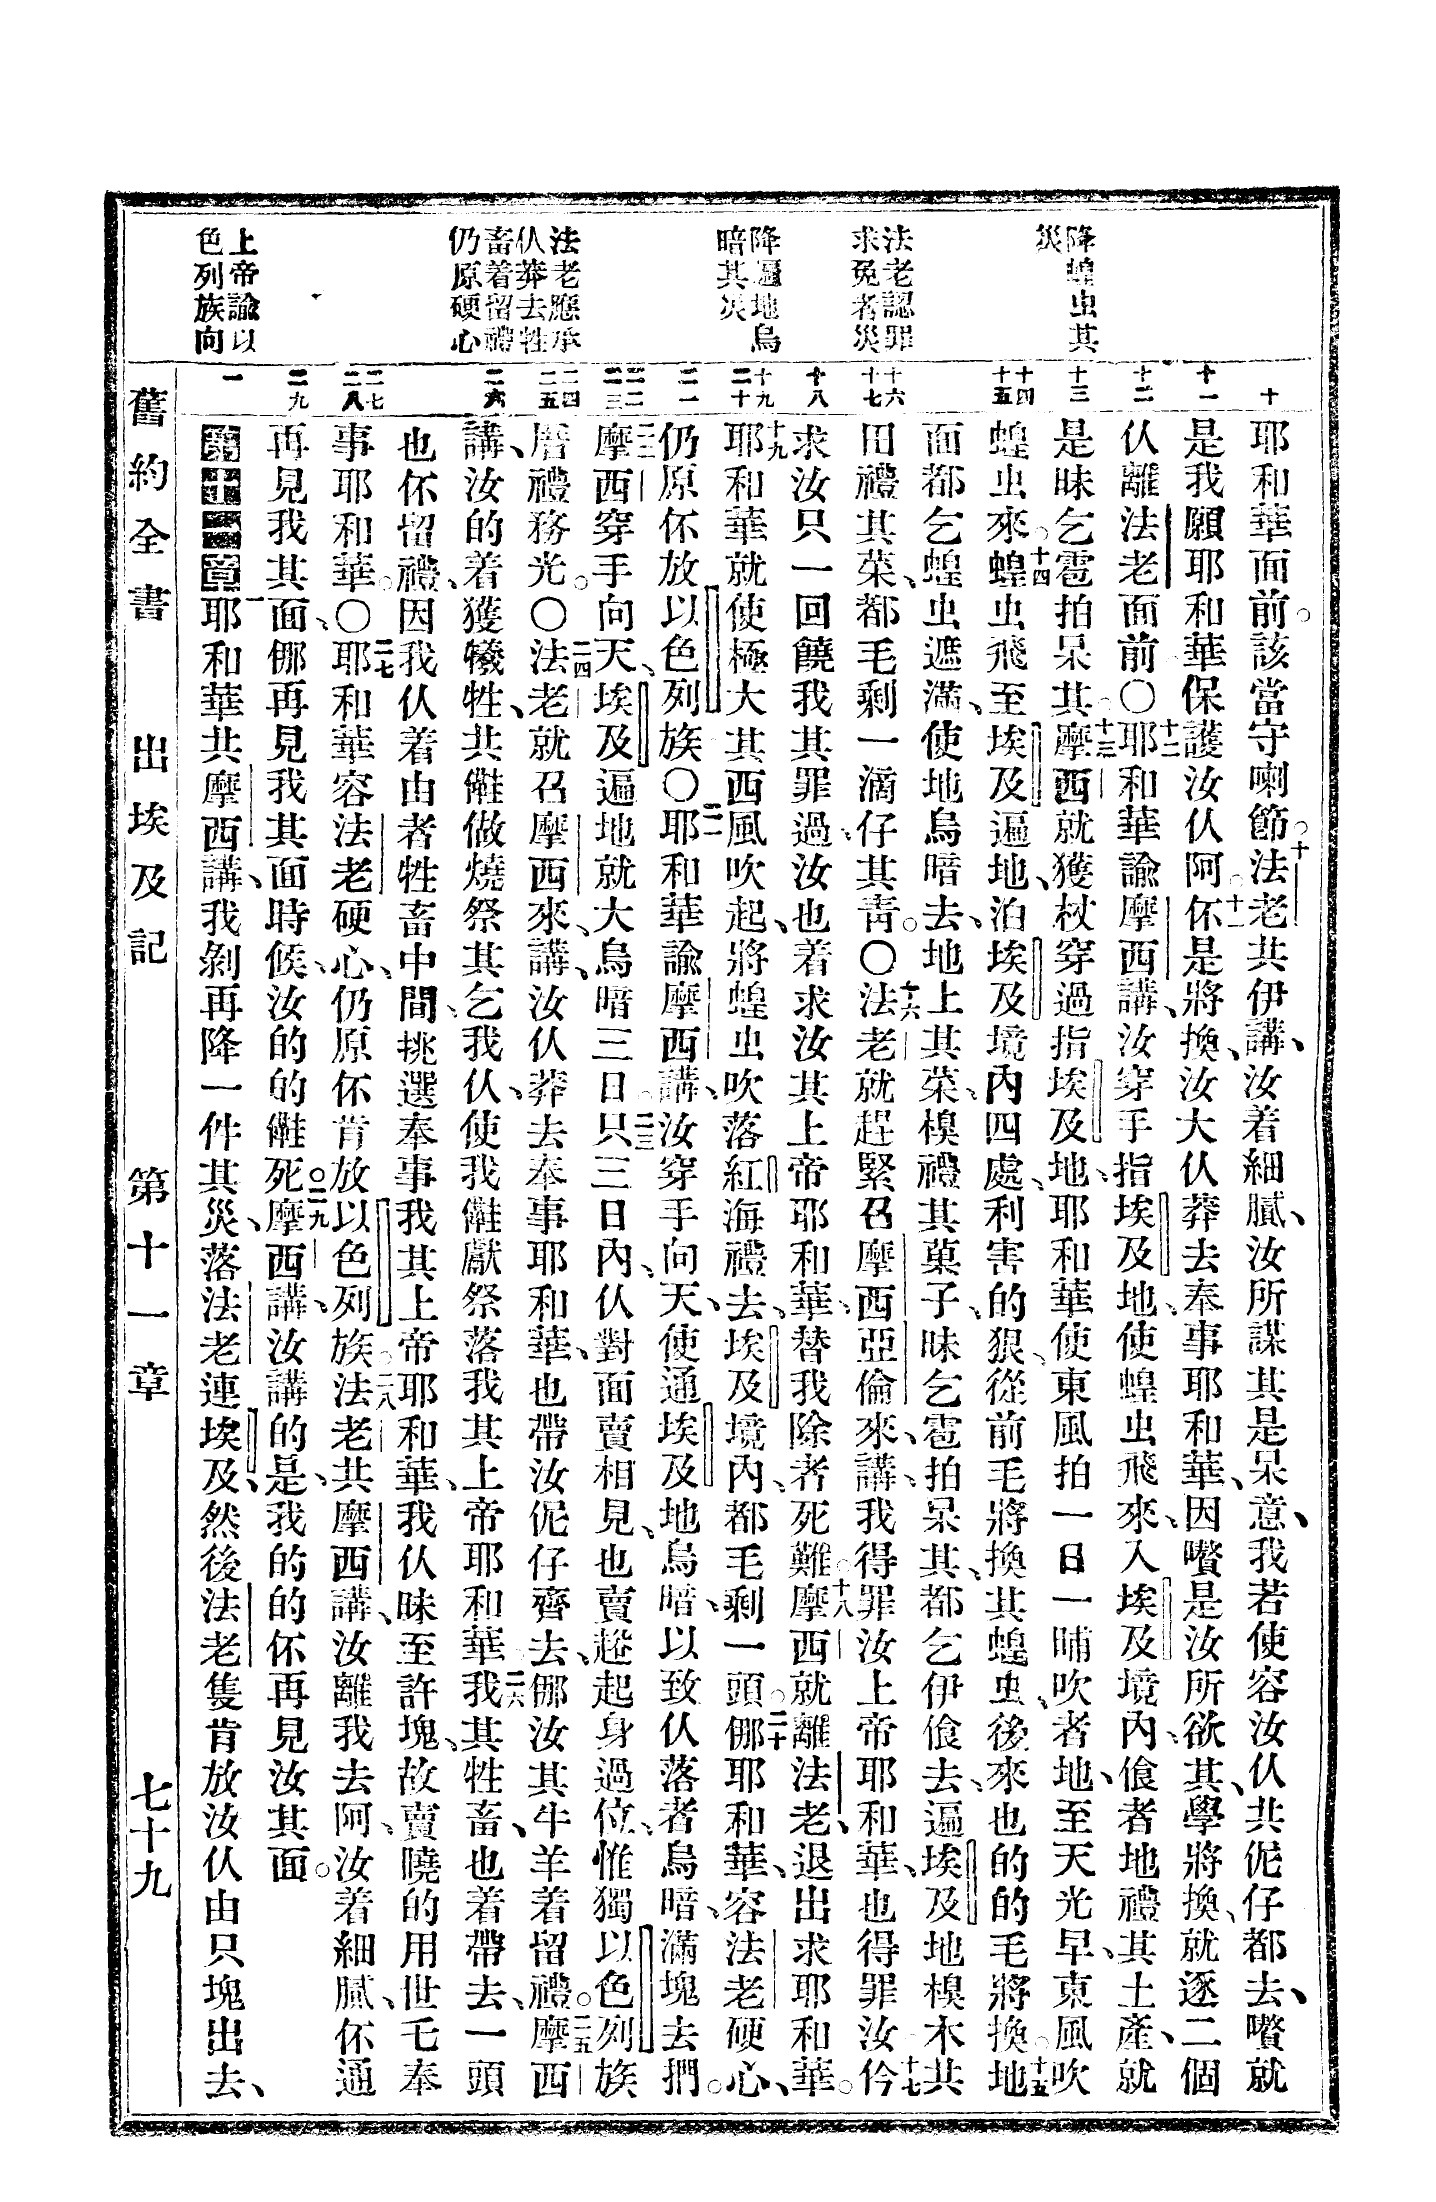 降蝗虫其
災
法老認罪
求免者災
降遍地烏
暗其災
法老應承
仈莽去牲
畜着留禮
仍原硬心
上帝諭以
色列族向
十
十一
十二
十三
十四
十五
十六
十七
十八
十九
二十
二一
二二
二三
二四
二五
二六
二七
二八
二九
一
耶和華面前。該當守喇節。十法老共伊講、汝着細膩、汝所謀其是呆意、我若使容汝仈共伲仔都去、囋就
是我願耶和華保護汝仈阿。十一伓是將換、汝大仈莽去奉事耶和華、因囋是汝所欲其、學將換、就逐二個
仈離法老面前〇十二耶和華諭摩西講、汝穿手指埃及地、使蝗虫飛來、入埃及境內、飧者地禮其土產、就
是昧乞雹拍呆其。十三摩西就獲杖穿過指埃及地、耶和華使東風拍一日一晡吹者地、至天光早、東風吹
蝗虫來。十四蝗虫飛至埃及遍地、泊埃及境內四處、利害的狠、從前毛將換其蝗虫、後來也的的毛將換。十五地
面都乞蝗虫遮滿、使地烏暗去、地上其菜、模禮其菓子、昧乞雹拍呆其、都乞伊飧去、遍埃及地模木共
田禮其菜、都毛剩一滴仔其青。〇十六法老就趕緊召摩西亞倫來、講、我得罪汝上帝耶和華、也得罪汝。十七仱
求汝只一回饒我其罪過、汝也着求汝其上帝耶和華、替我除者死難。十八摩西就離法老、退出求耶和華。
十九耶和華就使極大其西風吹起、將蝗虫吹落紅海禮去、埃及境內、都毛剩一頭。二十倻耶和華、容法老硬心、
仍原伓放以色列族〇二一耶和華諭摩西講、汝穿手向天、使通埃及地烏暗、以致仈落者烏暗、滿塊去捫。
二二摩西穿手向天、埃及遍地就大烏暗三日。二三只三日內、仈對面賣相見、也賣趂起身過位、惟獨以色列族
厝禮務光。〇二四法老就召摩西來、講、汝仈莽去奉事耶和華、也帶汝伲仔齊去、倻汝其牛羊着留禮。二五摩西
講、汝的着獲犧牲、共儺做燒祭其、乞我仈、使我儺獻祭落我其上帝耶和華。二六我其牲畜、也着帶去、一頭
也伓留禮、因我仈着由者牲畜中間、挑選奉事我其上帝耶和華、我仈昧至許塊、故賣曉的用世乇奉
事耶和華。〇二七耶和華容法老硬心、仍原伓肯放以色列族。二八法老共摩西講、汝離我去阿、汝着細膩、伓通
再見我其面、倻再見我其面時候、汝的的儺死。二九摩西講、汝講的是、我的的伓再見汝其面。
第十一章一耶和華共摩西講、我剝再降一件其災、落法老連埃及、然後法老隻肯放汝仈由只塊出去、
舊約全書　出埃及記　第十一章　七十九